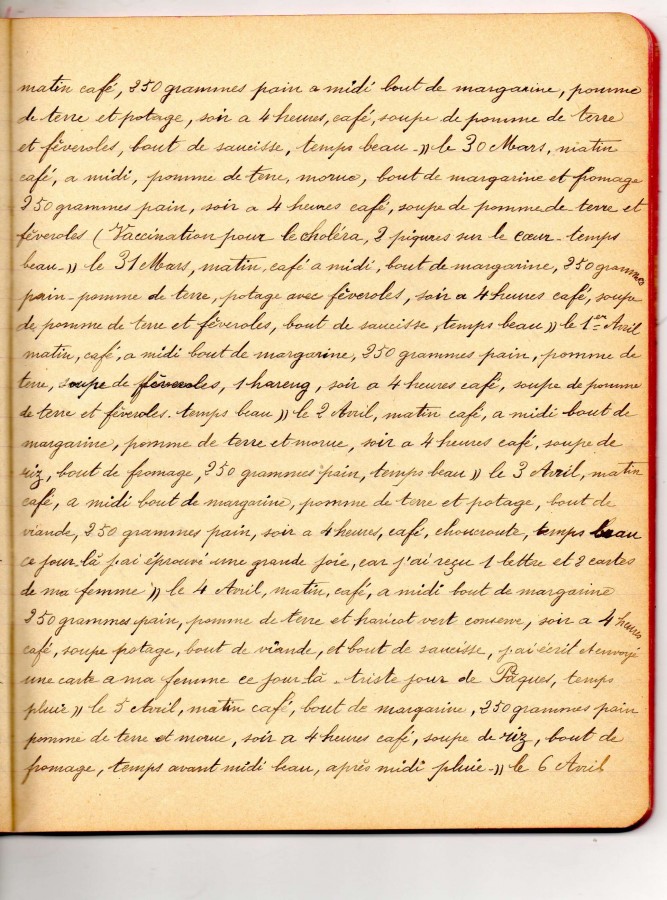 matin café, 250 grammes pain a midi bout de margarine, pomme
de terre et potage, soir a 4 heures, café, soupe de pomme de terre
et féveroles, bout de saucisse, temps beau-)) le 30 Mars, matin
café, a midi, pomme de terre, morue, bout de margarine et fromage
250 grammes pain, soir a 4 heures café, soupe de pomme de terre et
féveroles (Vaccination pour le choléra, 2 piqures sur le cœur- temps
beau-)) le 31 Mars, matin, café a midi, bout de margarine, 250 grammes
pain- pomme de terre, potage avec féveroles, soir a 4 heures café, soupe
de pomme de terre et féveroles, bout de saucisse, temps beau)) le 1er Avril
matin, café, a midi bout de margarine, 250 grammes pain, pomme de
terre, soupe de féveroles, 1 hareng, soir a 4 heures café, soupe de pomme
de terre et féveroles. temps beau)) le 2 Avril, matin café, a midi bout de
margarine, pomme de terre et morue, soir a 4 heures café, soupe de
riz, bout de fromage, 250 grammes pain, temps beau )) le 3 Avril, matin
café, a midi bout de margarine, pomme de terre et potage, bout de
viande, 250 grammes pain, soir a 4 heures, café, choucroute, temps beau
ce jour là j'ai éprouvé une grande joie, car j'ai reçu 1 lettre et 2 cartes
de ma femme )) le 4 Avril, matin, café, a midi bout de margarine
250 grammes pain, pomme de terre et haricot vert conserve, soir a 4 heures
café, soupe potage, bout de viande, et bout de saucisse, j'ai écrit et envoyé
une carte a ma femme ce jour là - triste jour de Pâques, temps
pluie )) le 5 Avril, matin café, bout de margarine, 250 grammes pain
pomme de terre et morue, soir a 4 heures café, soupe de riz, bout de
fromage, temps avant midi beau, après midi pluie-)) le 6 Avril